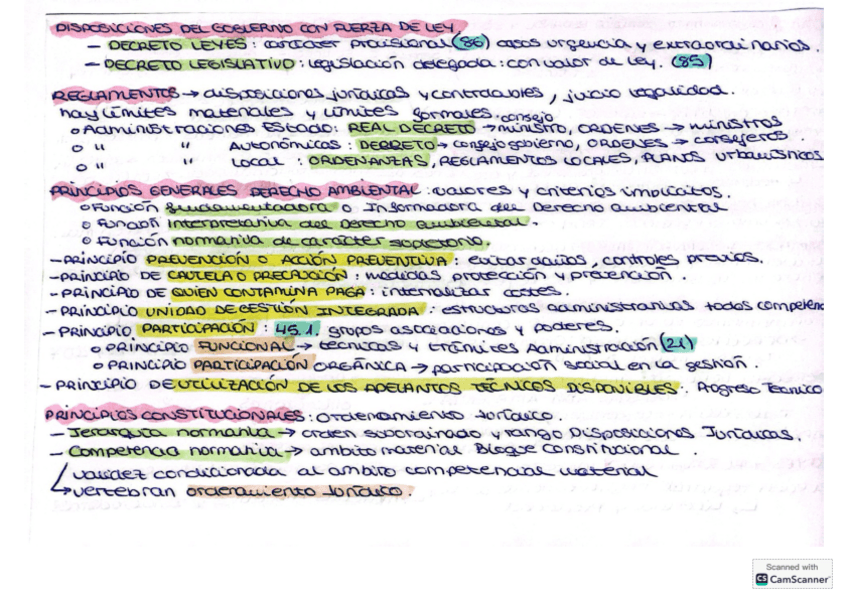 DISPOSICIONES DEL GOBIERNO CON FUERZA DE LEY
- DECRETO LEYES : carácter provisional (86) casos urgencia y extraordinarios.
- DECRETO LEGISLATIVO : legislación delegada : con valor de ley. (85)
REGLAMENTOS → disposiciones jurídicas y controlables, juicio legalidad.
hay límites materiales y límites formales.
o Administraciones Estado: REAL DECRETO → consejo ministro, ORDENES → ministros
o " " Autonómicas : DECRETO → consejo gobierno, ORDENES → consejeros.
o " " Local : ORDENANZAS, REGLAMENTOS LOCALES, PLANOS URBANISTICOS
PRINCIPIOS GENERALES DERECHO AMBIENTAL : valores y criterios implícitos.
o Función fundamentadora o Informadora del Derecho ambiental
o Función interpretativa del Derecho ambiental.
o Función normativa de carácter supletorio.
- PRINCIPIO PREVENCIÓN O ACCIÓN PREVENTIVA : evitar daños, controles previos.
- PRINCIPIO DE CAUTELA O PRECAUCIÓN : medidas protección y prevención.
- PRINCIPIO DE QUIEN CONTAMINA PAGA : internalizar costes.
- PRINCIPIO UNIDAD DE GESTIÓN INTEGRADA : estructuras administrativas todas competenc
- PRINCIPIO PARTICIPACIÓN : 45.1. grupos asociaciones y poderes.
o PRINCIPIO FUNCIONAL → técnicas y trámites Administración (21)
o PRINCIPIO PARTICIPACIÓN ORGÁNICA → participación social en la gestión.
- PRINCIPIO DE UTILIZACIÓN DE LOS ADELANTOS TÉCNICOS DISPONIBLES : Progreso Técnico
PRINCIPIOS CONSTITUCIONALES : Ordenamiento Jurídico
- Jerarquía normativa → orden subordinado y rango Disposiciones Jurídicas.
- Competencia normativa → ambito material Bloque Constitucional.
validez condicionada al ambito competencial material
↳ vertebran ordenamiento Jurídico.
Scanned with
CS CamScanner